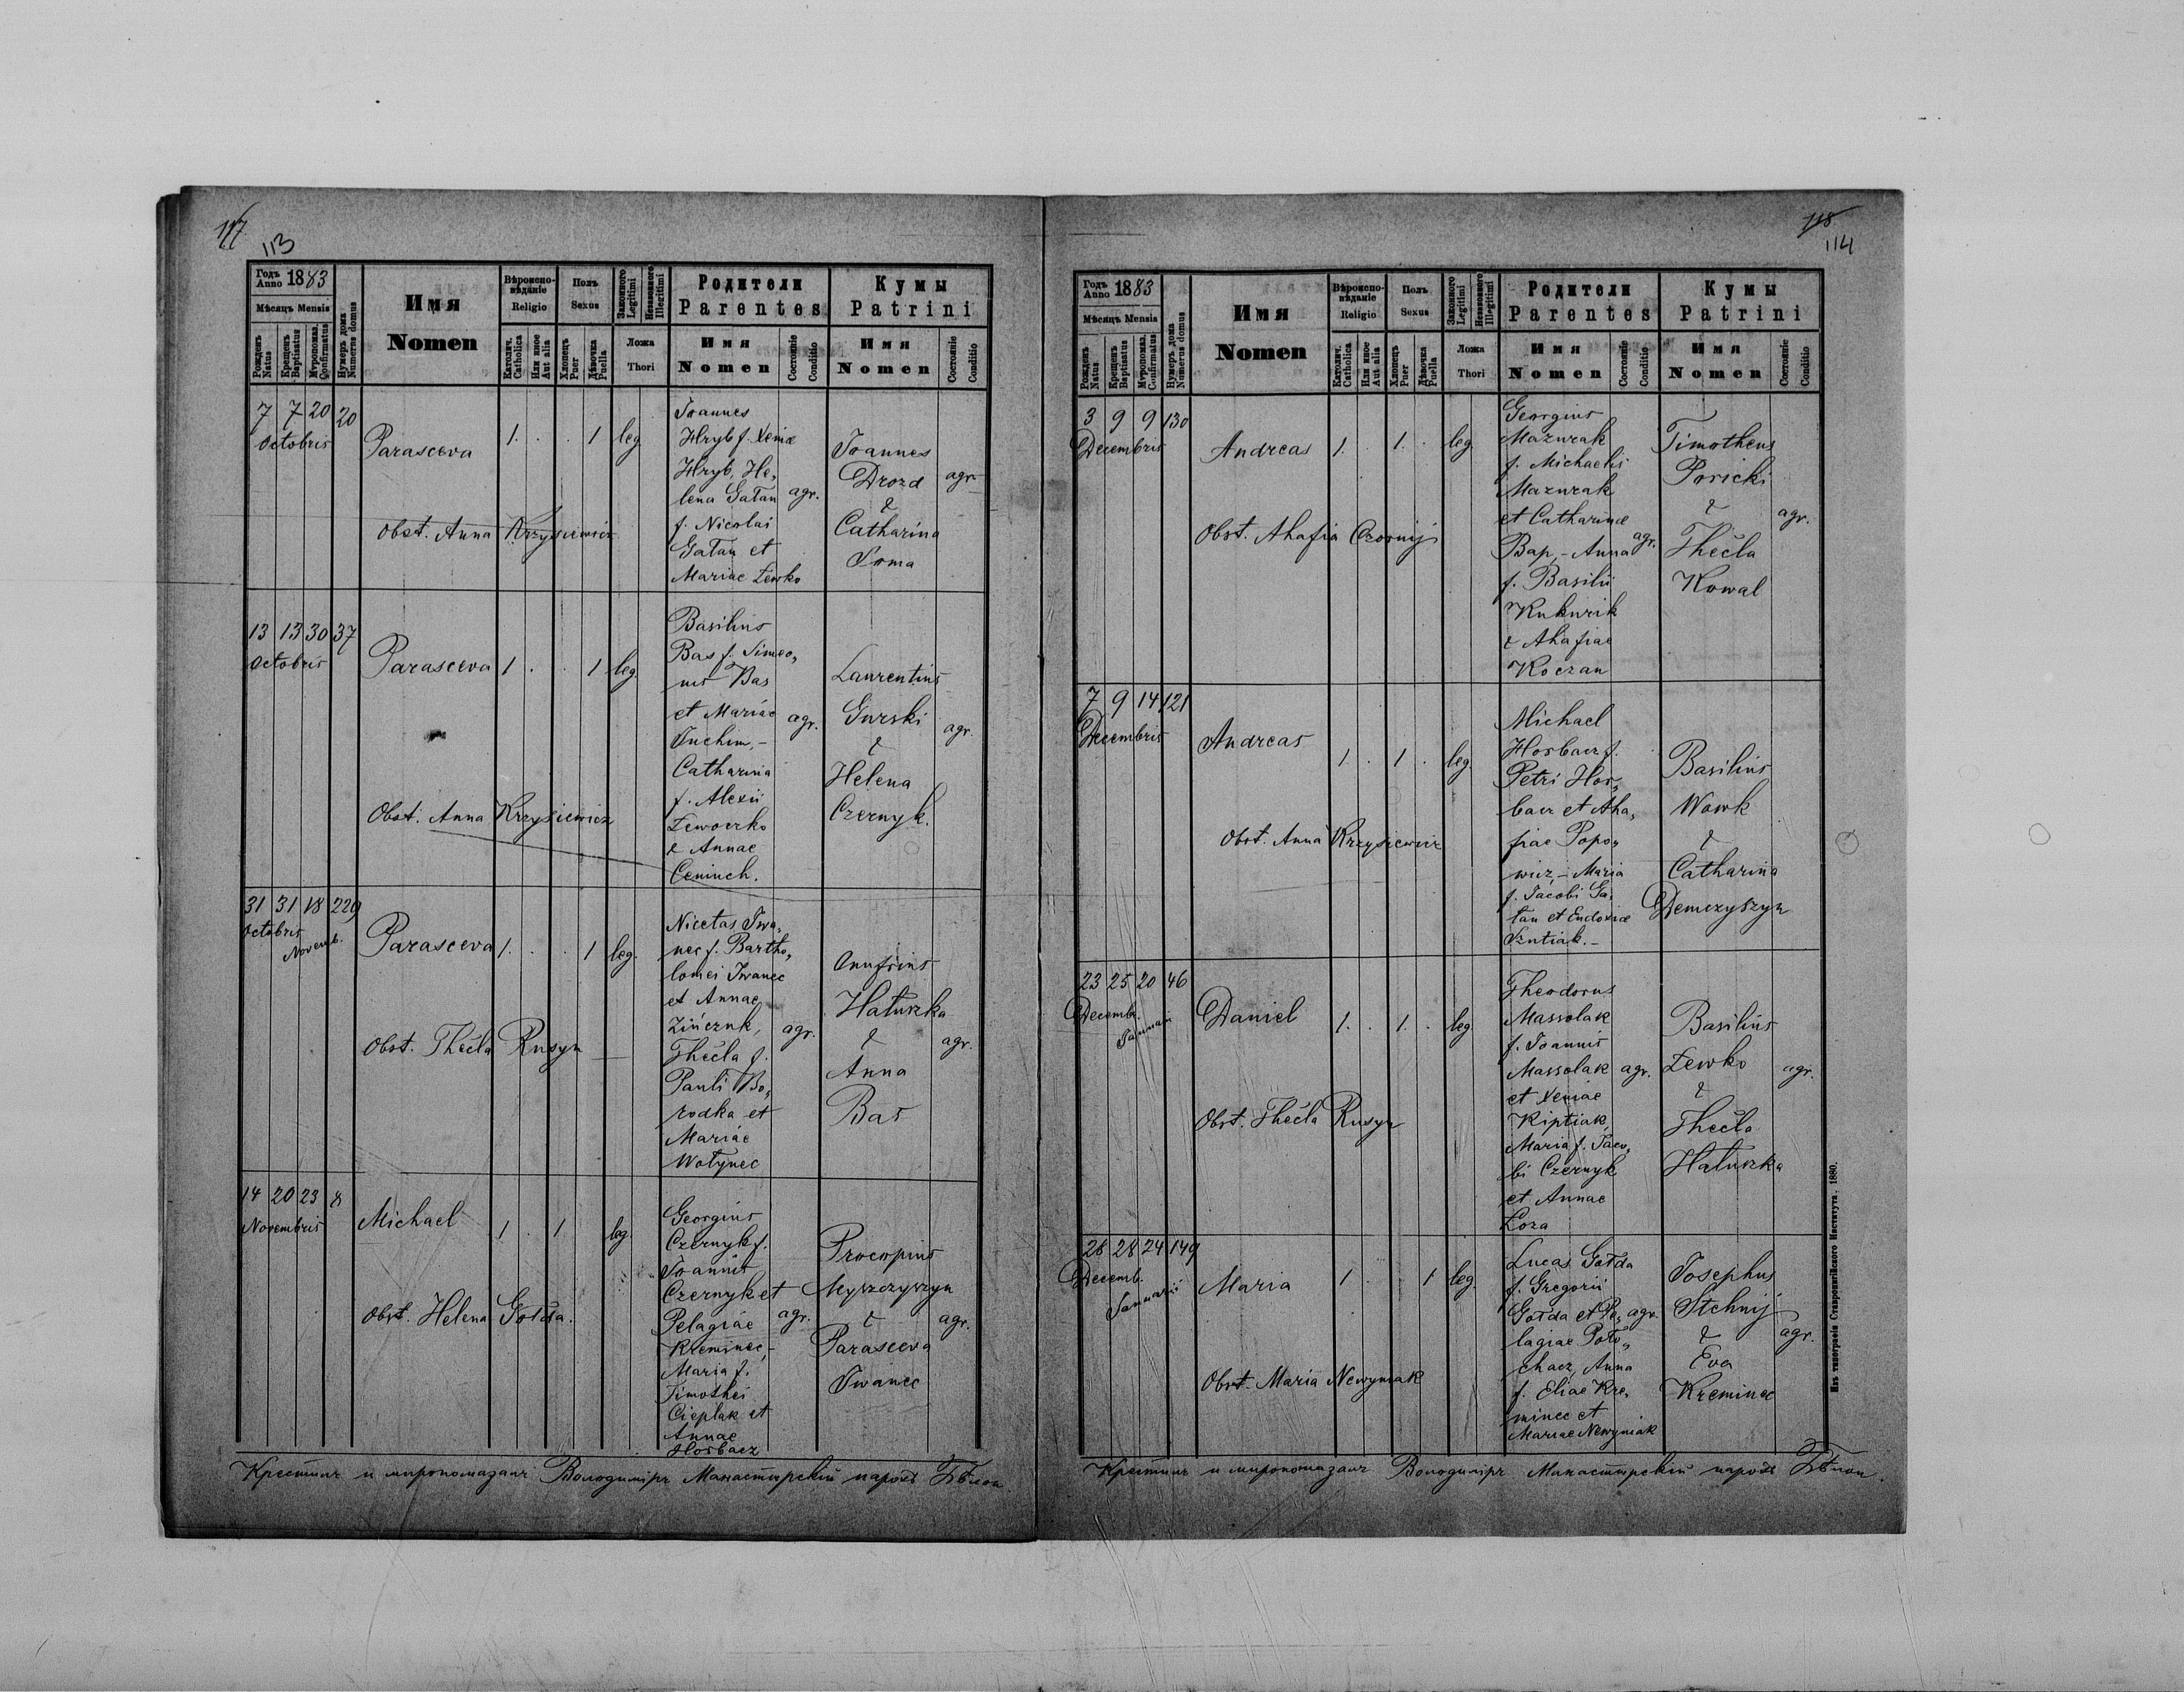 117
113
Годъ Anno 1883
Мѣсяцъ Mensis
Рожденъ Natus
Крещенъ Baptisatus
Муропомаз. Confirmatus
Нумеръ дома Numerus domus
Имя
Nomen
Вѣроисповѣданіе Religio
Католич. Catholica
Или иное Aut alia
Полъ Sexus
Хлопецъ Puer
Дѣвочка Puella
Законного Legitimi
Незаконного Illegitimi
Ложа Thori
Родители Parentes
Имя Nomen
Состояніе Conditio
Кумы Patrini
Имя Nomen
Состояніе Conditio
7 7 20 20
Octobris
Parasceva
1. . . 1 leg
Joannes
Hryb f. Xeniæ
Hryb, He„
lena Gałan agr.
f. Nicolai
Gałan et
Mariae Lewko
Joannes
Drozd agr
&
Catharina
Obst. Anna Krzysiewicz
13 13 30 37
Octobris
Parasceva 1 . . 1 leg
Basilius
Bas f. Simeo„
nis Bas
et Mariae agr.
Juchim, –
Catharina
f. Alexii
Lewoczko
& Annae
Ceniuch.
Laurentius
Gurski agr.
&
Helena
Czernyk.
Obst. Anna Krzysiewicz
31 31 18 229
Octobris
Novemb.
Parasceva 1. . . 1 leg.
Nicetas Iwa„
nec f. Bartho„
lomei Iwanec
et Annae
Zińczuk, agr.
Thecla f.
Pauli Bo„
rodka et
Mariae
Wołynec
Onufrius
Hałuszka
& agr.
Anna
Bas
Obst. Thecla Rusyn
14 20 23 8
Novembris
Michael 1 . 1 leg.
Georgius
Czernyk f.
Joannis
Czernyk et
Pelagiae agr.
Kreminec, –
Maria f.
Timothei
Cieplak et
Annae
Horbacz
Procopius
Myszczyszyn
& agr.
Parasceva
Iwanec
Obst. Helena Gołda.
Крестилъ и миропомазалъ Володимiръ Манастырскiй парохъ
118
114
Годъ Anno 1883
Мѣсяцъ Mensis
Рожденъ Natus
Крещенъ Baptisatus
Муропомаз. Confirmatus
Нумеръ дома Numerus domus
Имя
Nomen
Вѣроисповѣданіе Religio
Католич. Catholica
Или иное Aut alia
Полъ Sexus
Хлопецъ Puer
Дѣвочка Puella
Законного Legitimi
Незаконного Illegitimi
Ложа Thori
Родители Parentes
Имя Nomen
Состояніе Conditio
Кумы Patrini
Имя Nomen
Состояніе Conditio
3 9 9 130
Decembris
Andreas 1. . 1. . leg.
Georgius
Mazurak
f. Michaelis
Mazurak
et Catharinæ
Bap, – Anna agr.
f. Basilii
Kukurik
& Ahafiae
Koczan
Timotheus
Poricki
& agr.
Thecla
Kowal
Obst. Ahafia Czornij
7 9 14 121
Decembris
Andreas
1 . 1 . leg.
Michael
Horbacz f.
Petri Hor„
bacz et Aha„
fiae Popo„
wicz, – Maria
f. Jacobi Ga„
łan et Eudoxiæ
Szutiak. –
Basilius
Wowk
&
Catharina
Demczyszyn
Obst. Anna Krzysiewicz
23 25 20 46
Decemb.
Januarii
Daniel 1. . 1. . leg.
Theodorus
Massolak
f. Joannis
Massolak agr.
et Xeniae
Kiptiak,
Maria f. Jaco„
bi Czernyk
et Annae
Łoza
Basilius
Lewko agr.
&
Thecla
Hałuszka
Obst. Thecla Rusyn
28 28 24 149
Decemb.
Januarii
Maria 1 . 1 leg.
Lucas Gołda
f. Gregorii
Gołda et Pe„ agr.
lagiae Poto„
chacz, Anna
f. Eliae Kre„
minec et
Mariae Newyniak
Josephus
Stchnij
& agr.
Eva
Kreminec
Obst. Maria Newyniak
Крестилъ и миропомазалъ Володимiръ Манастырскiй парохъ
Изъ типографіи Ставропигійского Института. 1880.